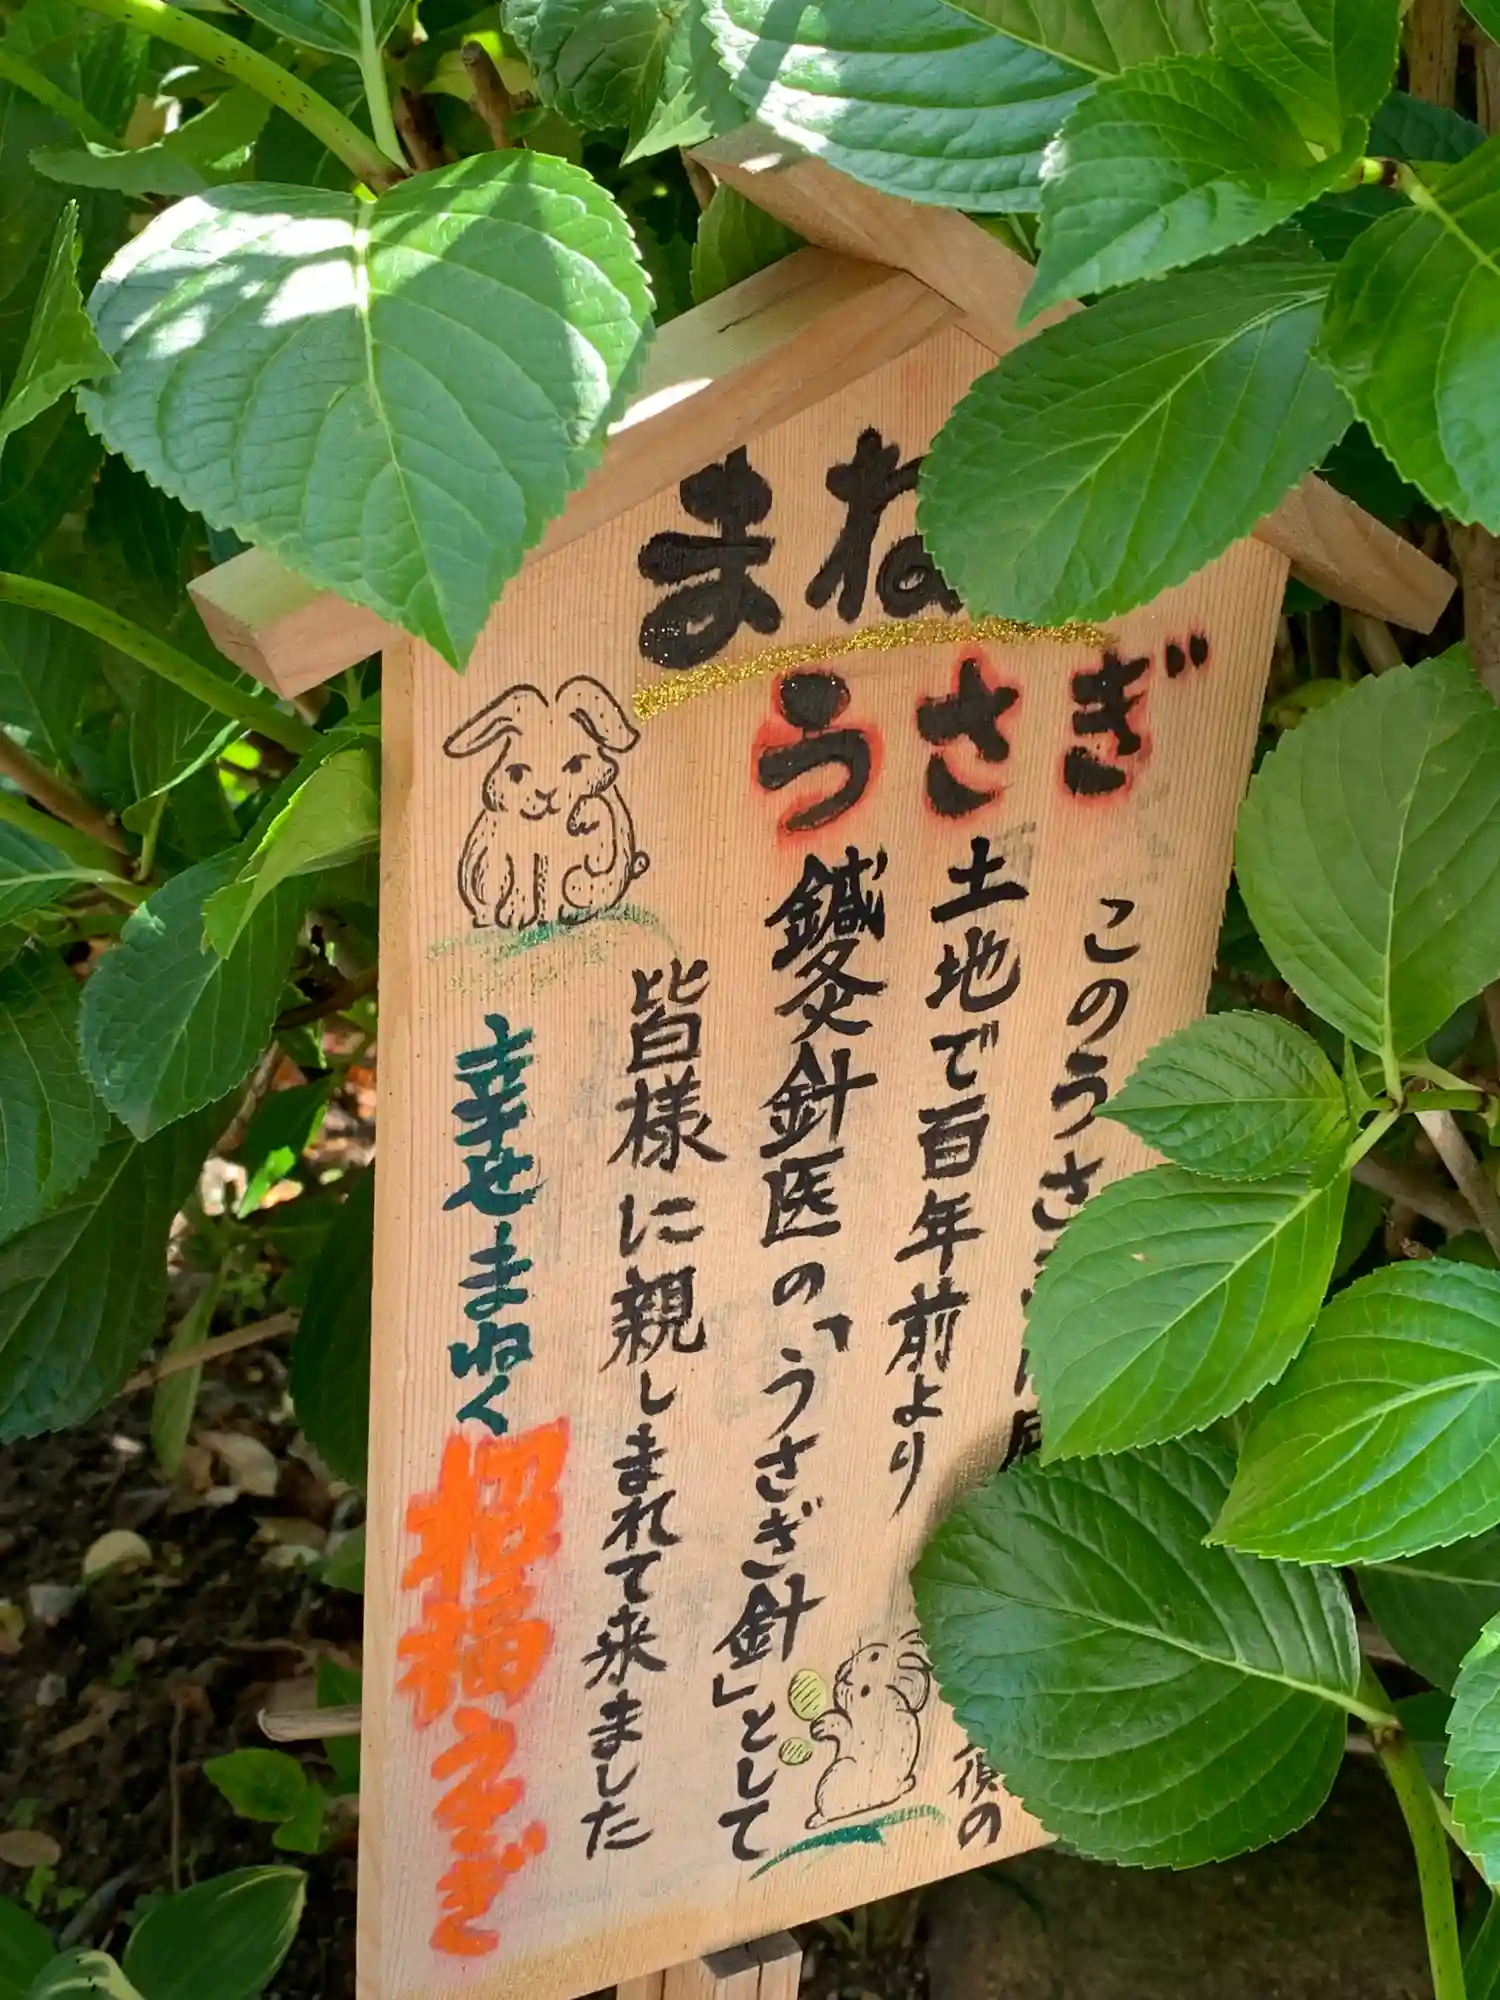 まね
うさぎ
このうさ
の
土地で百年前より
鍼灸針医の「うさぎ針」として
皆様に親しまれて来ました
幸せまねく
招福うさぎ